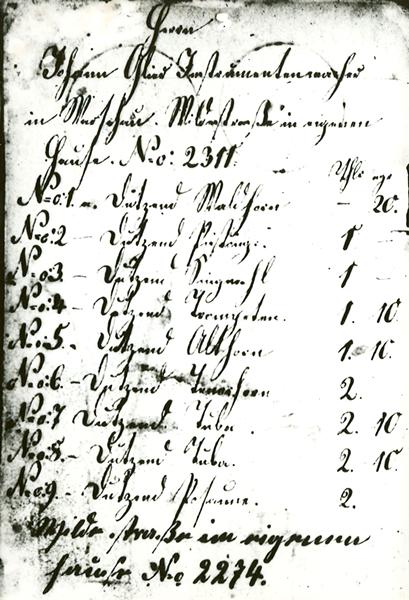 Herrn
Johann Glier Instrumentenmacher
in Warschau. Wilderstraße in eigenen
Hause. No: 2311.
Thlr ngr
No:1. a. Dutzend Waldhorn — 20.
No:2 — Dutzend 1 —
No:3 — Dutzend 1 —
No:4 — Dutzend Trompeten. 1. 10.
No:5. — Dutzend Althorn 1. 10.
No:6. — Dutzend Tenorhorn 2.
No:7 Dutzend Tuba. 2. 10
No:8. — Dutzend Tuba. 2. 10.
No:9. — Dutzend Posaune. 2.
Wilde straße im eigenen
Hause No 2274.